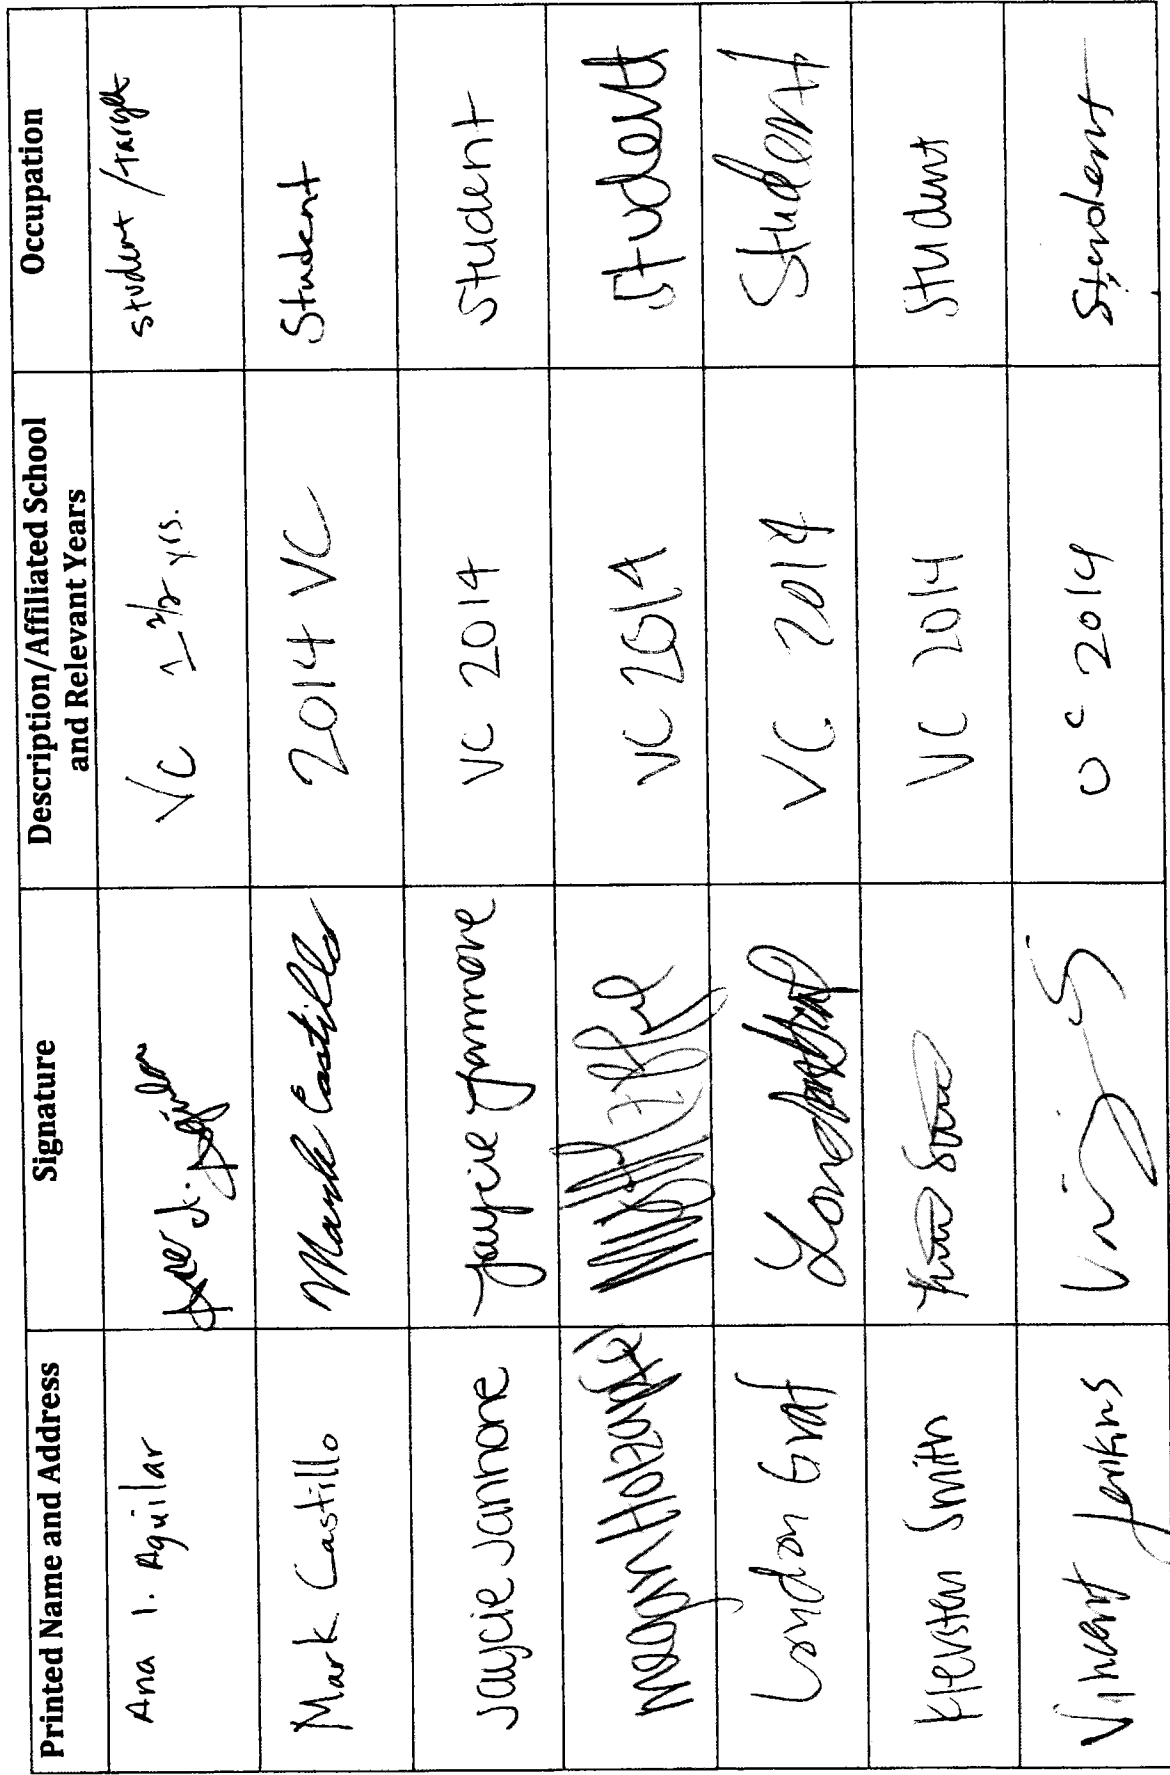 Printed Name and Address Signature Description/Affiliated School and Relevant Years Occupation
Ana I. Aguilar VC yrs. student / target
Mark Castillo Mark Castillo 2014 VC Student
Jaycie Jannone Jaycie Jannone VC 2014 Student
Megan VC 2014 Student
London Graf London Graf VC 2014 Student
Kiersten Smith VC 2014 Student
Vincent Jenkins VC 2014 Student